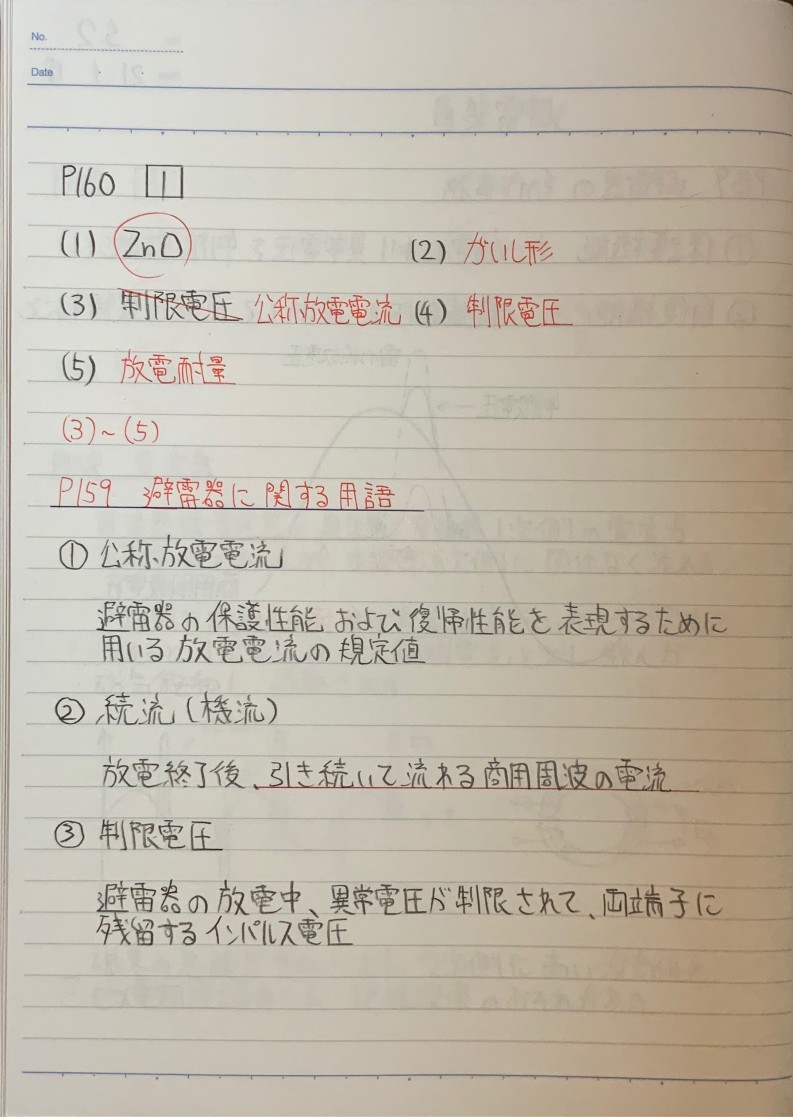 No.
Date
P160 1
(1) ZnO (2) がいし形
(3) 制限電圧 公称放電電流 (4) 制限電圧
(5) 放電耐量
(3)~(5)
P159 避雷器に関する用語
① 公称放電電流
避雷器の保護性能および復帰性能を表現するために
用いる放電電流の規定値
② 続流(機流)
放電終了後、引き続いて流れる商用周波の電流
③ 制限電圧
避雷器の放電中、異常電圧が制限されて、両端子に
残留するインパルス電圧